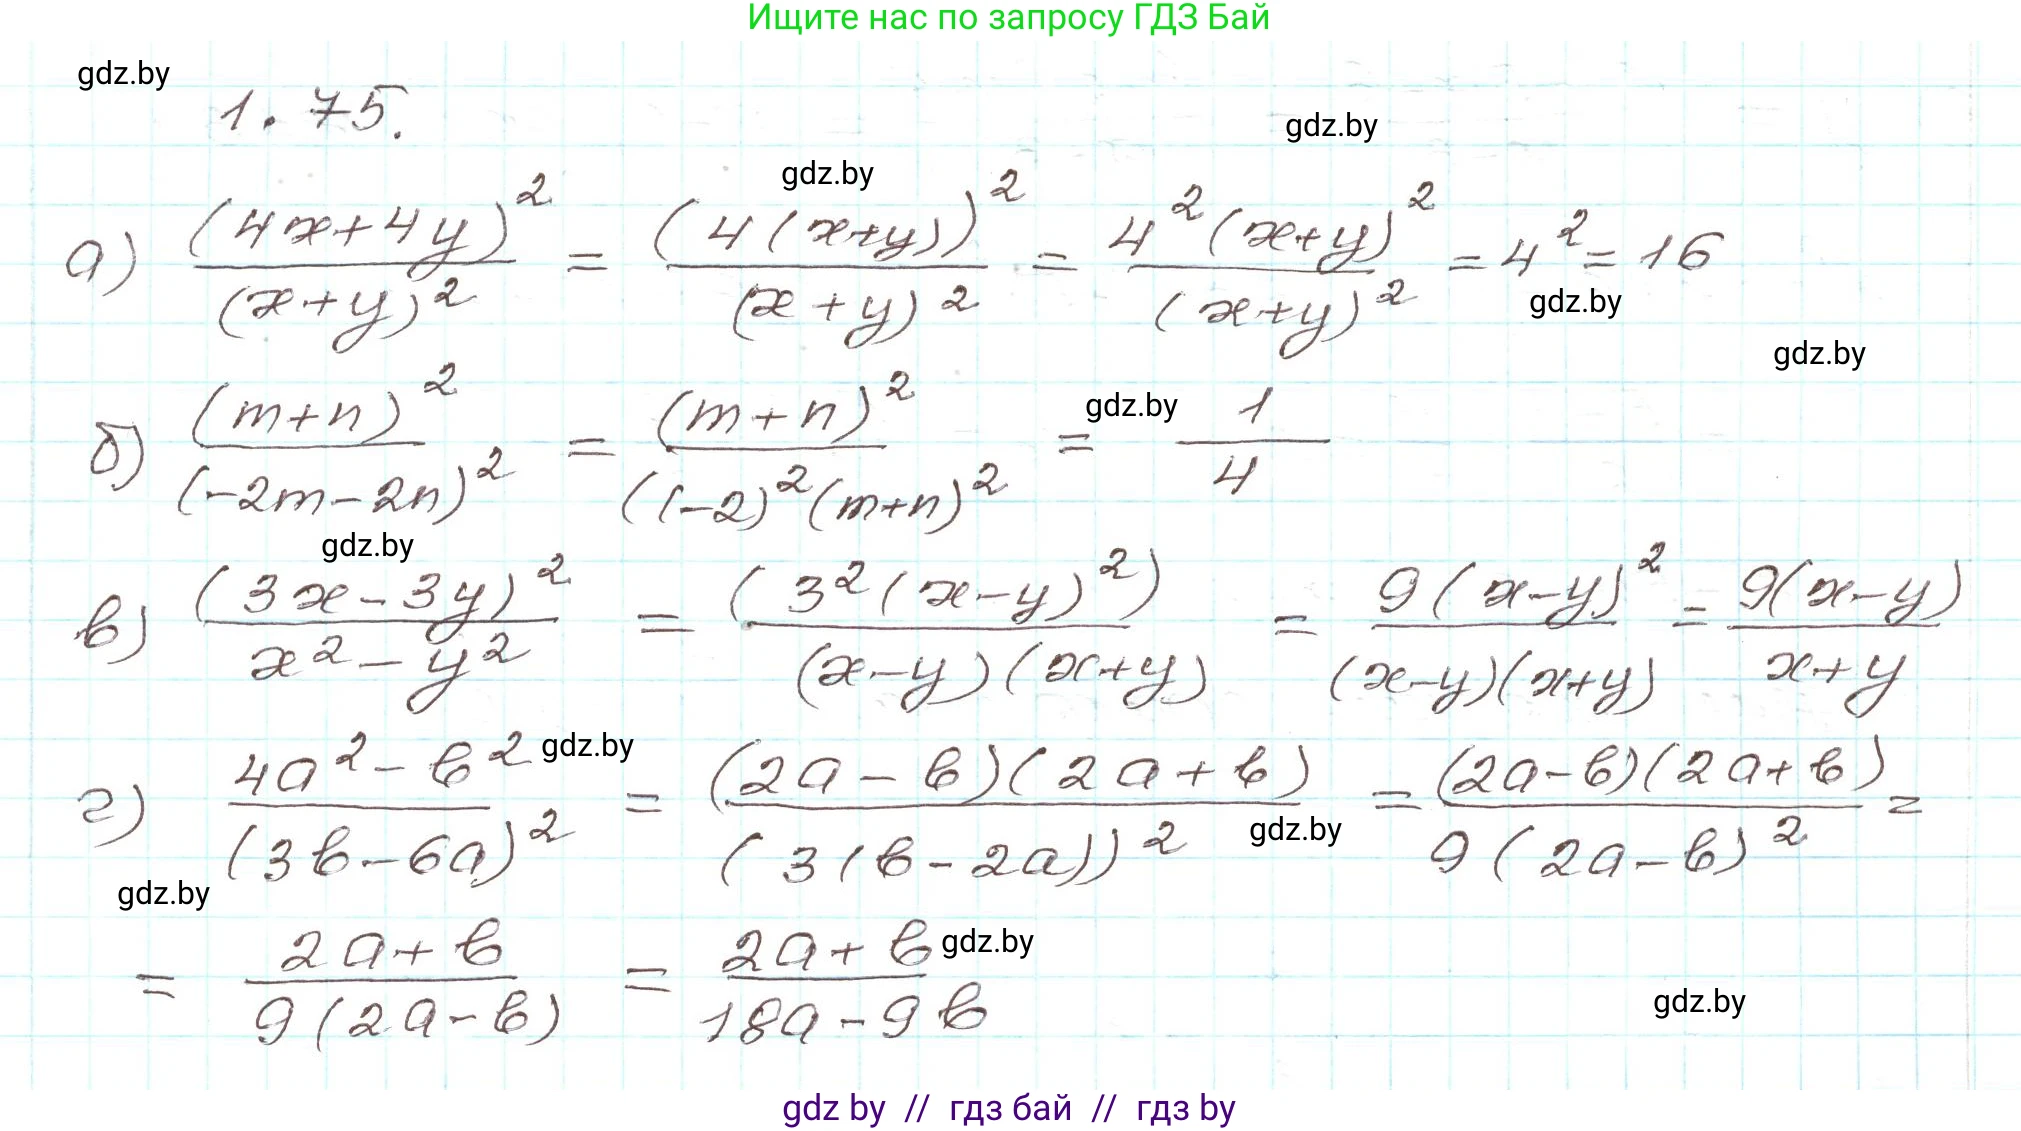 Ищите нас по запросу ГДЗ Бай
gdz.by
1.75.
gdz.by
gdz.by
а) (4x+4y)² / (x+y)² = (4(x+y))² / (x+y)² = 4²(x+y)² / (x+y)² = 4² = 16
gdz.by
gdz.by
б) (m+n)² / (-2m-2n)² = (m+n)² / ((-2)²(m+n)² = 1 / 4
gdz.by
gdz.by
в) (3x-3y)² / x²-y² = (3²(x-y)²) / (x-y)(x+y) = 9(x-y)² / (x-y)(x+y) = 9(x-y) / x+y
gdz.by
г) 4a²-b² / (3b-6a)² = (2a-b)(2a+b) / (3(b-2a))² = (2a-b)(2a+b) / 9(2a-b)² =
gdz.by
gdz.by
= 2a+b / 9(2a-b) = 2a+b / 18a-9b
gdz.by
gdz.by
gdz by // гдз бай // гдз by